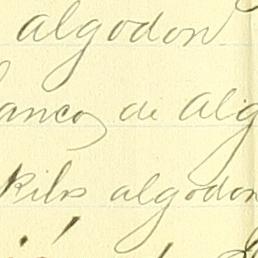 algodon
ancos de alg
kilos algodon